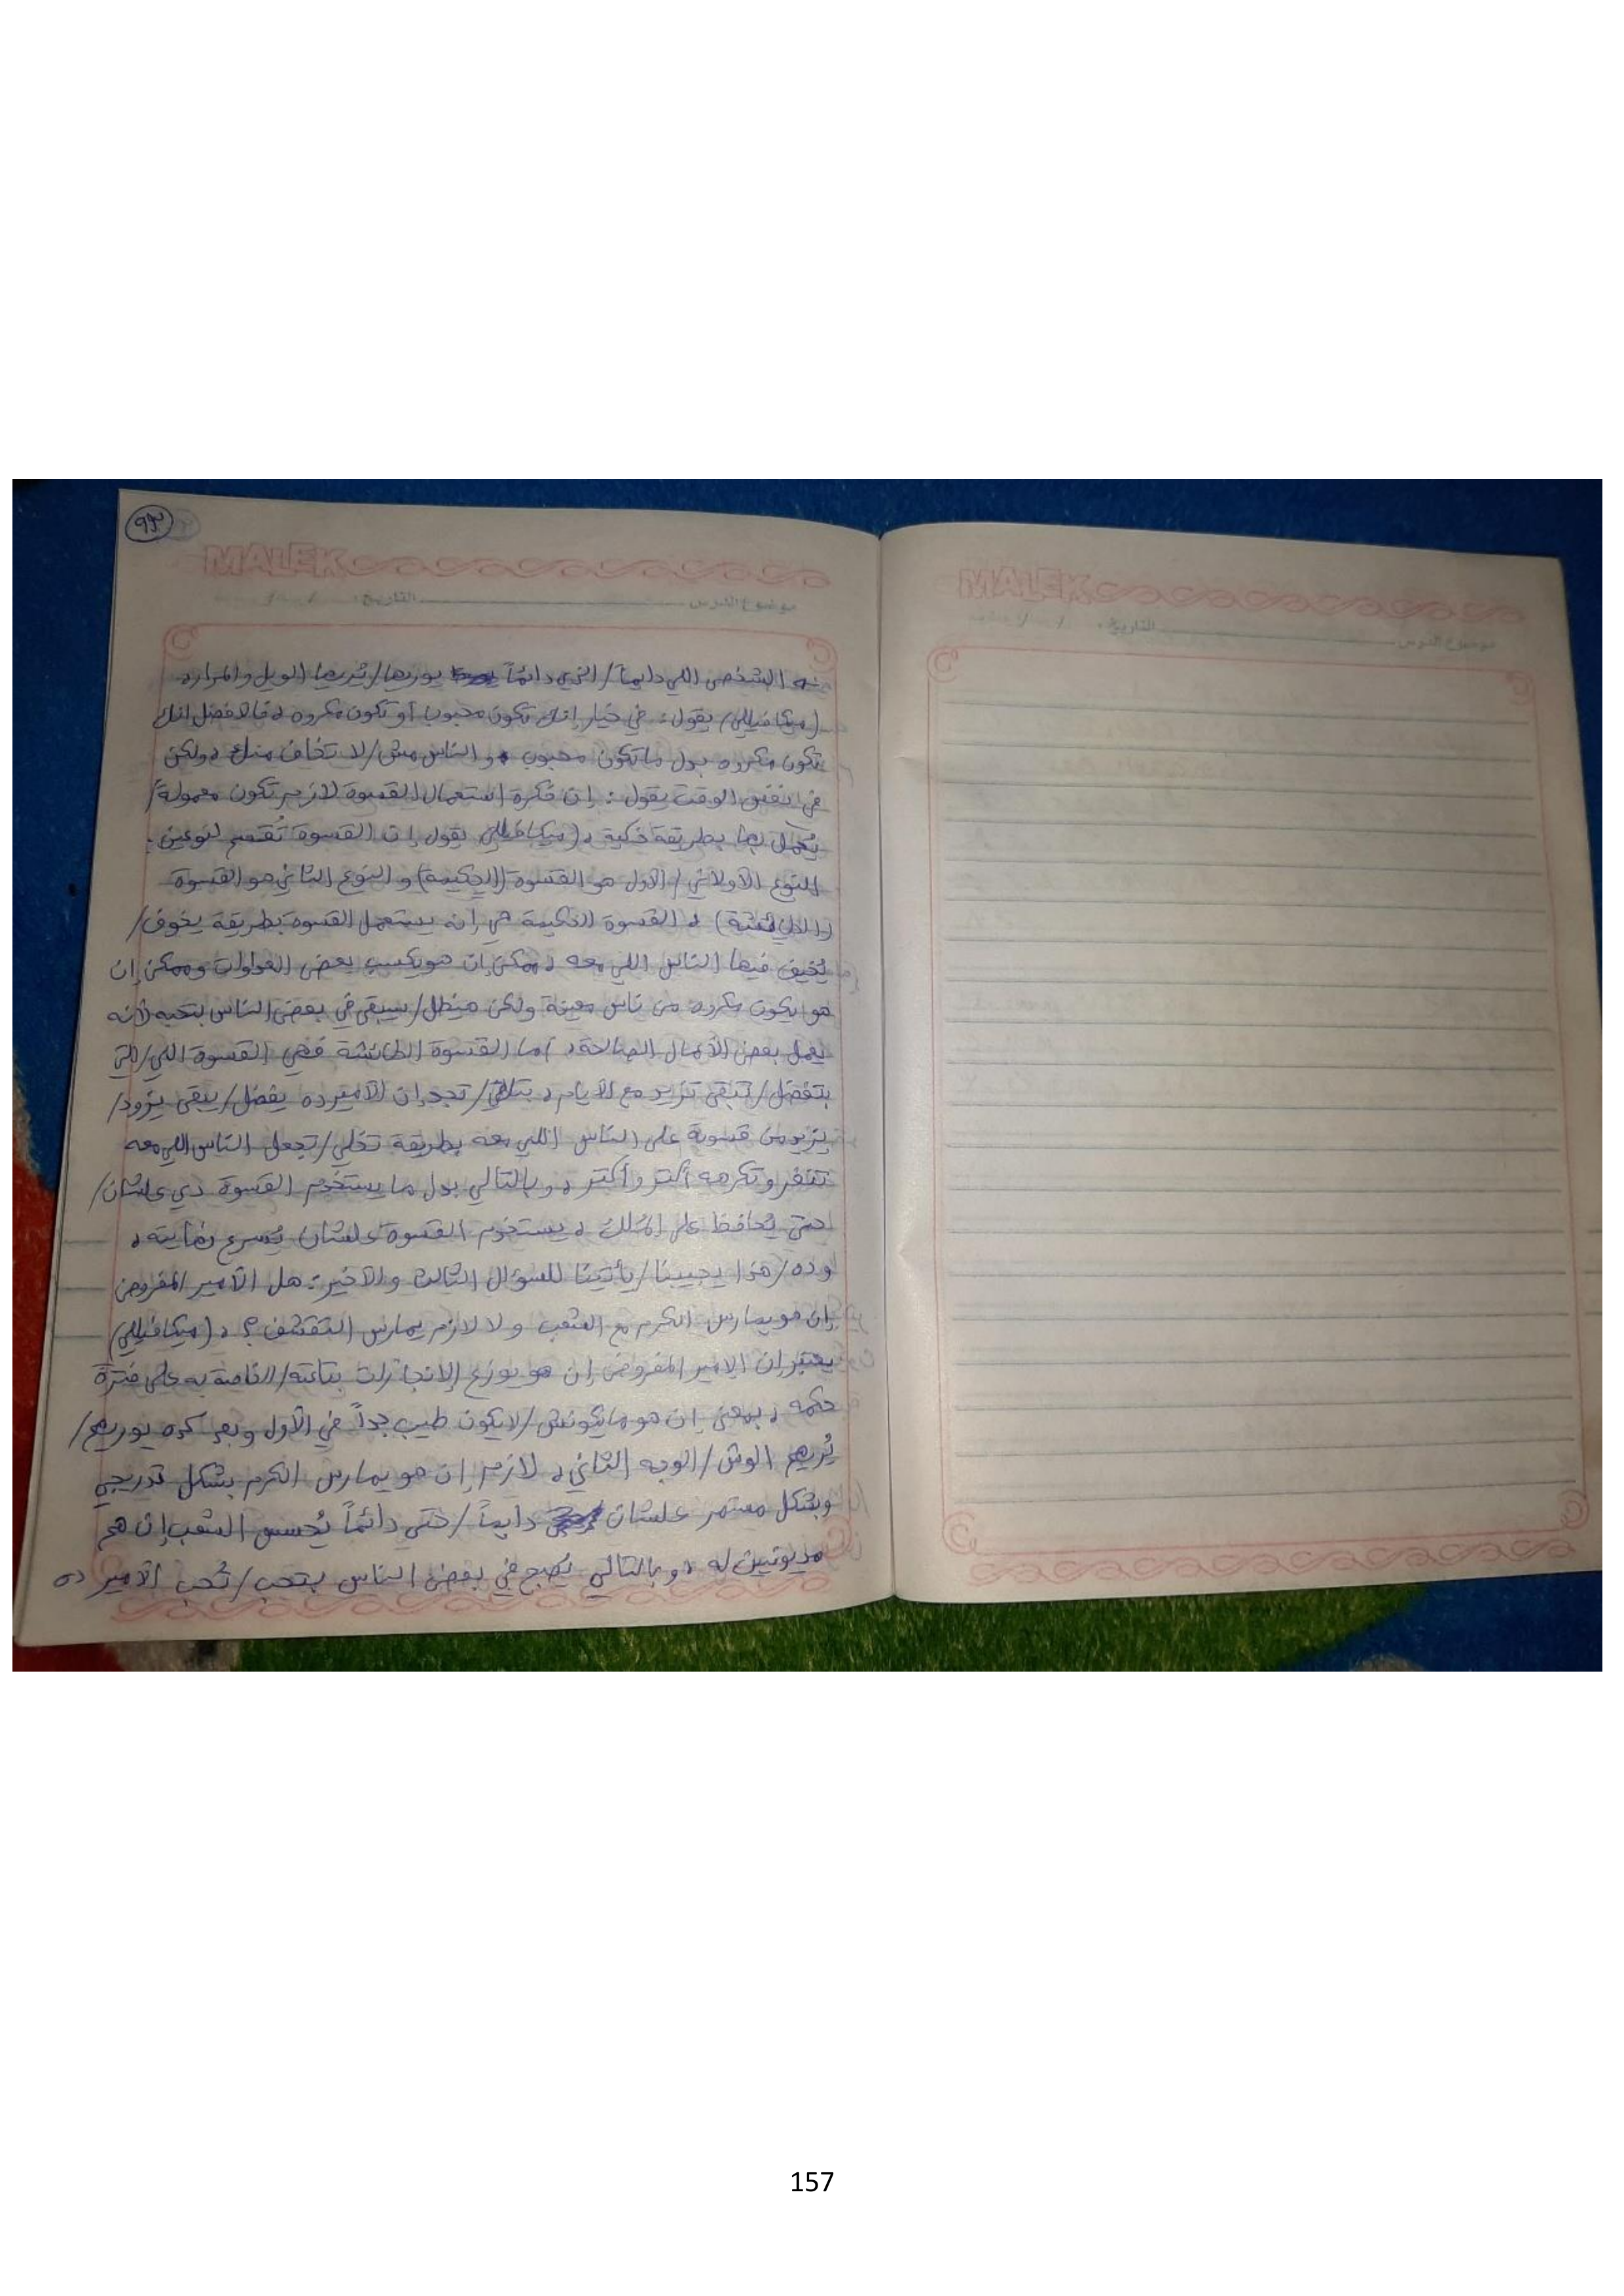 MALEK
موضوع الدرس التاريخ: / /
الشخص اللي دايماً/الذي دائماً يوريها/يُريها الويل والمرارة
(ميكافيللي) يقول: في خيار إنك تكون محبوب أو تكون مكروه، فالافضل انك
تكون مكروه بدل ما تكون محبوب و الناس مش/لا تخاف منك، ولكن
في نفس الوقت يقول: إن فكرة استعمال القسوة لازم تكون معمولة/
يُعمل بها بطريقة ذكية، (ميكافيللي) يقول إن القسوة تُقسم لنوعين:
النوع الأولاني/الأول هو القسوة (الحكيمة) و النوع الثاني هو القسوة
، القسوة الحكيمة هي إنه يستعمل القسوة بطريقة يخوف/
يُخيف فيها الناس اللي معه، ممكن إن هو يكسب بعض العداوات وممكن إن
هو يكون مكروه من ناس معينة ولكن هيظل/سيبقى في بعض الناس بتحبه لأنه
يعمل بعض الأعمال الصالحة، أما القسوة الطائشة فهي القسوة اللي/التي
بتفضل/تبقى تزيد مع الأيام، بتلاقي/تجد إن الأمير ده يفضل/يبقى يزود/
يزيد من قسوته على الناس اللي معه بطريقة تخلي/تجعل الناس اللي معه
تنفر وتكرهه أكتر وأكتر، و بالتالي بدل ما يستخدم القسوة دي علشان/
حتى يُحافظ على المُلك، يستخدم القسوة علشان يُسرع نهايته،
وده/هذا يجيبنا/يأتينا للسؤال الثالث والأخير: هل الأمير المفروض
إن هو يمارس الكرم مع الشعب ولا لازم يمارس التقشف؟، (ميكافيللي)
يعتبر إن الامير المفروض إن هو يوزع الإنجازات بتاعته/الخاصة به على فترة
حكمه، بمعنى إن هو مايكونش/لا يكون طيب جداً في الأول وبعد كده يوريهم/
يُريهم الوش/الوجه الثاني، لازم إن هو يمارس الكرم بشكل تدريجي
وبشكل مستمر علشان دايماً/حتى دائماً يُحسس الشعب إن هم
مديونين له، و بالتالي يُصبح في بعض الناس بتحب/تُحب الأمير ده
MALEK
موضوع الدرس التاريخ: / /
157